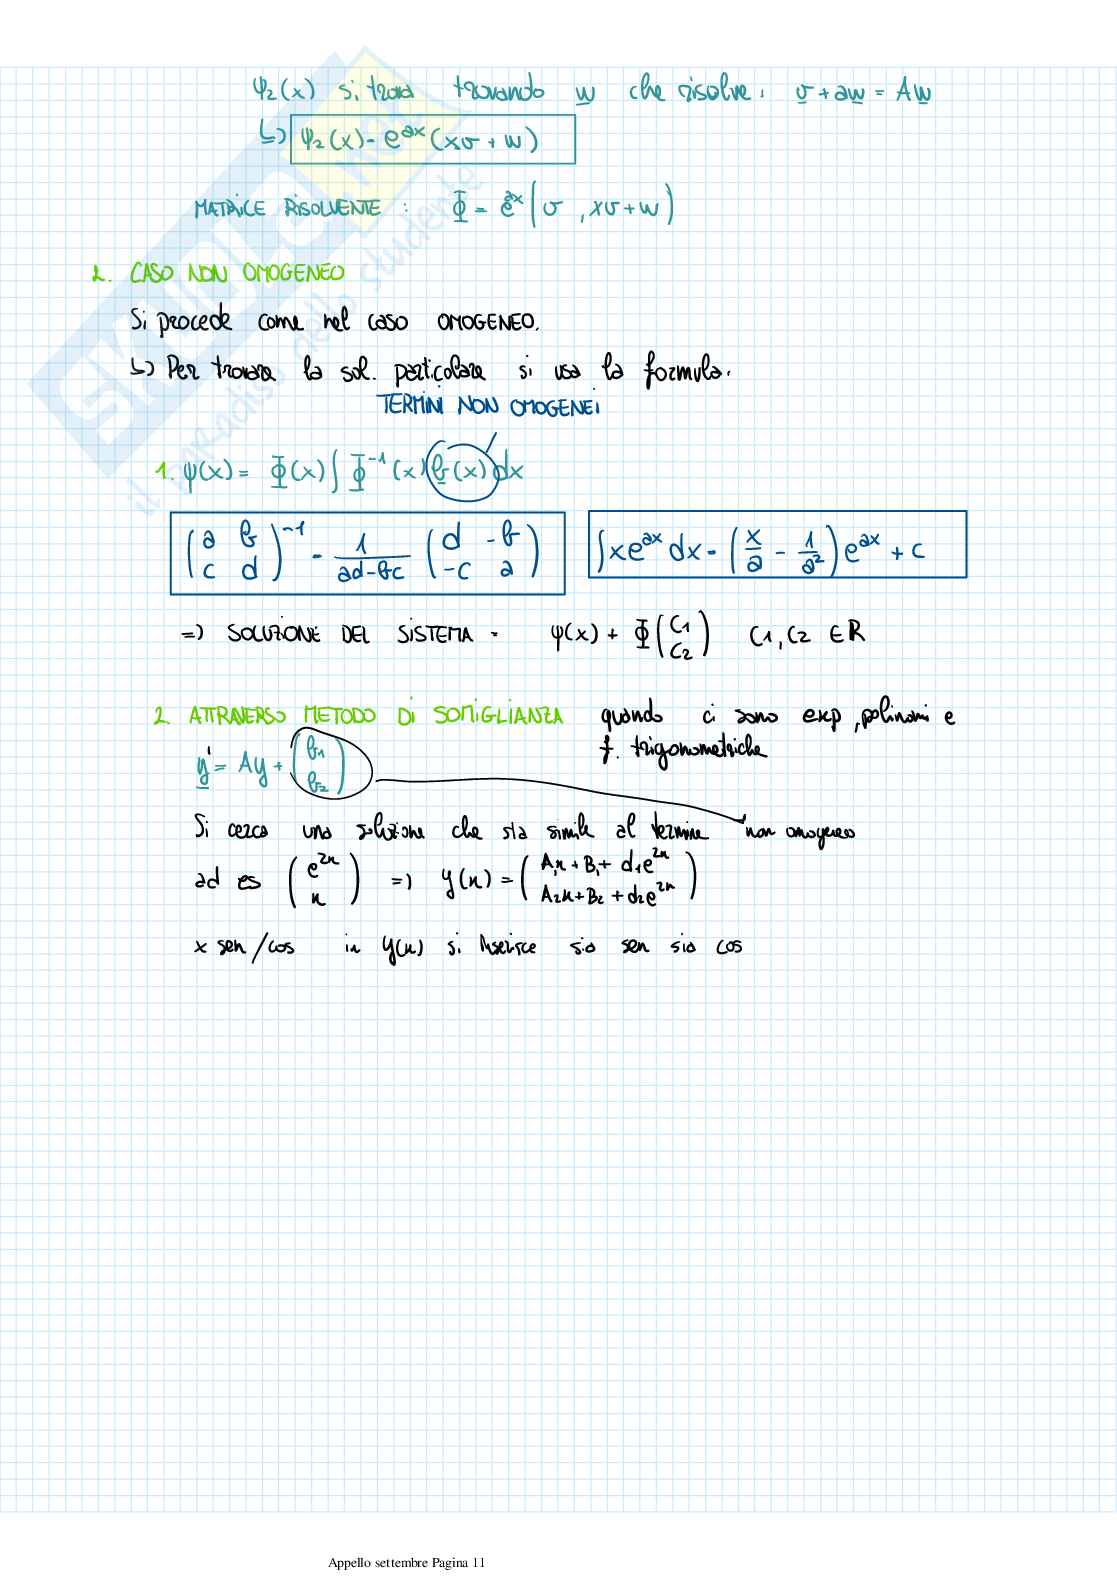 ψ₂(x) si trova trovando w che risolve: v + aw = Aw
↳ ψ₂(x) = e^{ax}(xv + w)
MATRICE RISOLVENTE : Φ = e^{ax}(v , xv + w)
2. CASO NON OMOGENEO
Si procede come nel caso OMOGENEO.
↳ Per trovare la sol. particolare si usa la formula:
TERMINI NON OMOGENEI
1. ψ(x) = Φ(x) ∫ Φ⁻¹(x) b(x) dx
(a b ; c d)⁻¹ = 1/(ad-bc) (d -b ; -c a)
∫xe^{ax} dx = (x/a - 1/a²) e^{ax} + c
=> SOLUZIONE DEL SISTEMA = ψ(x) + Φ(C1 ; C2) C1, C2 ∈ R
2. ATTRAVERSO METODO DI SOMIGLIANZA quando ci sono exp, polinomi e
f. trigonometriche
y' = Ay + (b₁ ; b₂)
Si cerca una soluzione che sia simile al termine non omogeneo
ad es (e^{2x} ; x) => y(x) = (A₁x + B₁ + d₁e^{2x} ; A₂x + B₂ + d₂e^{2x})
x sen/cos in y(x) si inserisce sia sen sia cos
SKUOLA.net
il paradiso dello studente
Appello settembre Pagina 11